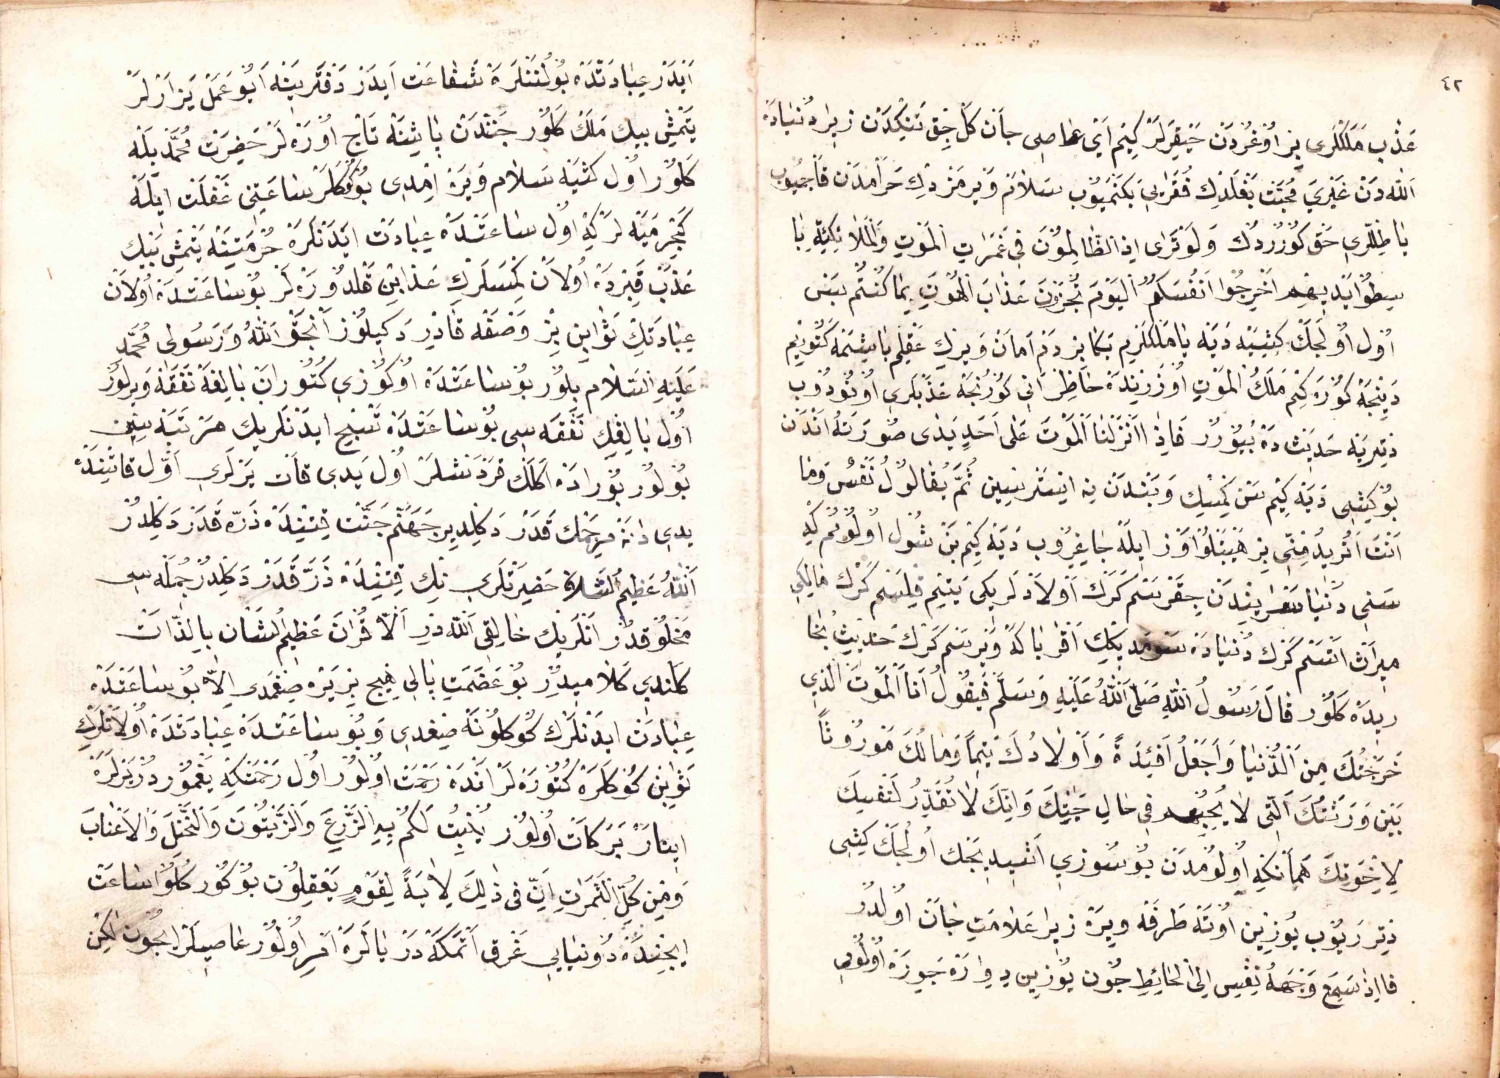 ٤٢
عَذَب مَلَكْلَرى بِزْ اُوغُرْدَنْ چَيقِرْلَرْ كِيم اَىْ عاصِى جاَن كَلْ چِق تَنِكْدَنْ زِيرا دُنْيادَه
اَللّٰه دَنْ غَيْرِى مُحَبَّتْ بَغْلَدِكْ فَقَرَايِ بَكَنْمَيُوبْ سَلاَمْ وَيرْمَزْدِكْ حَرَامْدَنْ قاَچْمَيُوب
باَطِلْلَرِى حَقْ كُورُرْدُكْ وَلَوْ تَرٰى اِذِ الظَّالِمُوْنَ فِى غَمَرَاتِ الْمَوْتِ وَالْمَلاَئِكَةُ باَ
سِطُوْا اَيْدِيهِمْ اَخْرِجُوا اَنْفُسَكُمْ اَلْيَوْمَ تُجْزَوْنَ عَذَابَ الْهُوْنِ بِمَا كُنْتُمْ بَسْ
اُولْ اُولَجَكْ كِشِيَه دَيَه ياَ مَلَكْلَرِمْ بَكاَ بِرْ دَمْ اَماَنْ وَيرِكْ عَقْلِمْ باَشِمَه كَتُورَيِمْ
دَيِنْجَه كُورَه كِيمْ مَلَكُ الْمَوْتِ اُوزْرِنْدَه حاَظِرْ اَنِى كُورُنْجَه عَذَبْلَرِى اُونُودُوبْ
دِتِرَيَه حَدِيثْ دَه بُيُورُرْ فَاِذَا اَنْزَلْنَا الْمَوْتَ عَلَى اَحَدٍ يَدٰى صُورَتَهُ اَنْدَنْ
بُو كِيشِى دَيَه كِيمْ سَنْ كِمْسِكْ وَبَنْدَنْ نِه اِيسْتَرْسِينْ ثُمَّ يُقاَلُ نَفْسُ وَماَ
اَنْتَ اَتُرِيدُ مِنِّى بِزْ هَيْبَتْلُو اَوَزْ ايلَه جاَغِرُوبْ دَيَه كِيمْ بَنْ شُولْ اُولُومُمْ كِه
سَنِى دُنْياَ سَراَيِنْدَنْ چِقَرْسَمْ كَرَكْ اَوْلاَدْلَرِيكِى يَتِيمْ قِلْسَمْ كَرَكْ ماَلِيكِى
مِيرَاثْ اَتْسَمْ كَرَكْ دُنْياَدَه سَوْمَدِيكِكْ اَقْرَباَكَه وَيرْسَمْ كَرَكْ حَدِيثِ بُخاَ
رِيدَه كَلُورْ قاَلَ رَسُولُ اللّٰهِ صَلَّى اللّٰهُ عَلَيْهِ وَسَلَّمَ فَيَقُولُ اَناَ الْمَوْتُ الَّذِى
خَرَجْتُكَ مِنَ الدُّنْياَ وَاَجْعَلُ اَفْئِدَةً وَاَوْلاَدُكَ يَتِيماً وَماَلُكَ مَوْرُوثاً
بَيْنَ وَرَثَتِكَ الَّتِى لاَ يُحِبُّهُمْ فِى حاَلِ حَيٰوتِكَ وَاِنَّكَ لاَ تُقَدِّرُ لِنَفْسِكَ
لِاٰخِرَتِكَ هَماَنْكِه اُولُومْدَنْ بُو سُوزِى اَشِيدِيجَكْ اُولَجَكْ كِيشِى
دِتِرَيُوبْ يُوزِينْ اُوتَه طَرَفَه ويرَه زِيراَ عَلاَمَتِ جاَنْ اُولُدُرْ
فاَاِذَا سَمِعَ وَجْهَهُ نَفْسِ اِلَى الْحاَئِطِ چُونْ يُوزِينْ دِوَارَه چَوِرَه اُولُومِى
اَيْدَرْ عِبادَتْدَه بُولُنَنْلَرَه شَفاعَتْ اَيدَرْ دَفْتَرِينَه اَيُو عَمَلْ يَزاَرْلَرْ
يَتْمِشْ بِيكْ مَلَكْ كَلُورْ جَنَّتْدَنْ باَشِنَه تاَجْ اُورَه لَرْ حَضِرَتْ مُحَمَّدْ يلَه
كَلُورْ اُولْ كِشِيَه سَلاَمْ وَيرَه اِمْدِى بُو كُونْلَرْ ساَعَتِنِى غَفْلَتْ ايلَه
كَچِرْمَيَه لَرْكِه اُولْ ساَعَتْدَه عِبادَتْ ايدَنْلَرَه حُرْمَتِينَه يَتْمِشْ بِيكْ
عَذَبْ قَبِرْدَه اُولاَنْ كِمْسَلَرِكْ عَذَابِنْ قَلْدُورَه لَرْ بُو ساَعَتْدَه اُولاَنْ
عِباَدَتِكْ ثَوَابِنْ بِزْ وَصْفَه قاَدِرْ دَكِيلُوزْ اَنْجَقْ اَللّٰهُ وَرَسُولِى مُحَمَّدْ
عَلَيْهِ السَّلاَمْ بِلُورْ بُو ساَعَتْدَه اُوكُوزِى كُتُورَانْ باَلِغَه نَفَقَه وَيرِلُورْ
اُولْ باَلِيغِكْ نَفَقَه سِى بُو ساَعَتْدَه تَسْبِيحْ ايدَنْلَرِيكْ مَرْتَبَه سِينْ
بُولُورْ بُورَادَه اَكلَكْ قَرْدَشْلَرْ اُولْ يَدِى قاَتْ يَرْلَرِى اَوَّلْ قاَتِنْدَه
يدِى دَانَه مِرْجِمَكْ قَدَرْ دَكِلْدِيرْ جَهَنَّمْ جَنَّتْ قِتِنْدَه ذَرَّه قَدَرْ دَكِلْدُرْ
اَللّٰهُ عَظِيمُ الشَّاَنْ حَضِرَتْلَرِى نِكْ قِتِنْدَه ذَرَّه قَدَرْ دَكِلْدُرْ جُمْلَه سِى
مَخْلُوقْدُرْ اَنْلَرِيكْ خاَلِقِى اَللّٰه دِرْ اَلاَّ قُرْاٰنْ عَظِيمُ الشَّاَنْ بِالذَّاتْ
كَانْدِى كَلاَمِيدُرْ بُو عَضَمَتْ باَلِى هِيچْ بِرْ يَرَه صِغْمَدِى اِلاَّ بُو ساَعَتْدَه
عِباَدَتْ ايدَنْلَرِكْ كُوكْلُونَه صِغْدِى وَبُو ساَعَتْدَه عِباَدَتْدَه اُولاَنْلَرِكْ
ثَوَابِنْ كُوكْلَرَه كُتُورَه لَرْ اَنْدَه رَحْمَتْ اُولُورْ اُولْ رَحْمَتْكِه يَغْمُورْدُرْ يَرْلَرَه
اِينَرْ بَرَكاَتْ اُولُورْ يُنْبِتُ لَكُمْ بِهِ الزَّرْعَ وَالزَّيْتُونَ وَالنَّخِيلَ وَالْاَعْنَابَ
وَمِنْ كُلِّ الثَّمَرَاتِ اِنَّ فِى ذٰلِكَ لَاٰيَةً لِقَوْمٍ يَعْقِلُونَ بُو كُورْكَلُو ساَعَتْ
ايچِنْدَه دُونْياَيِى غَرْقْ اَتْمَكَه دَرْياَلَرَه اَمِرْ اُولُورْ عاَصِيلَرْ ايچُونْ لٰكِنْ